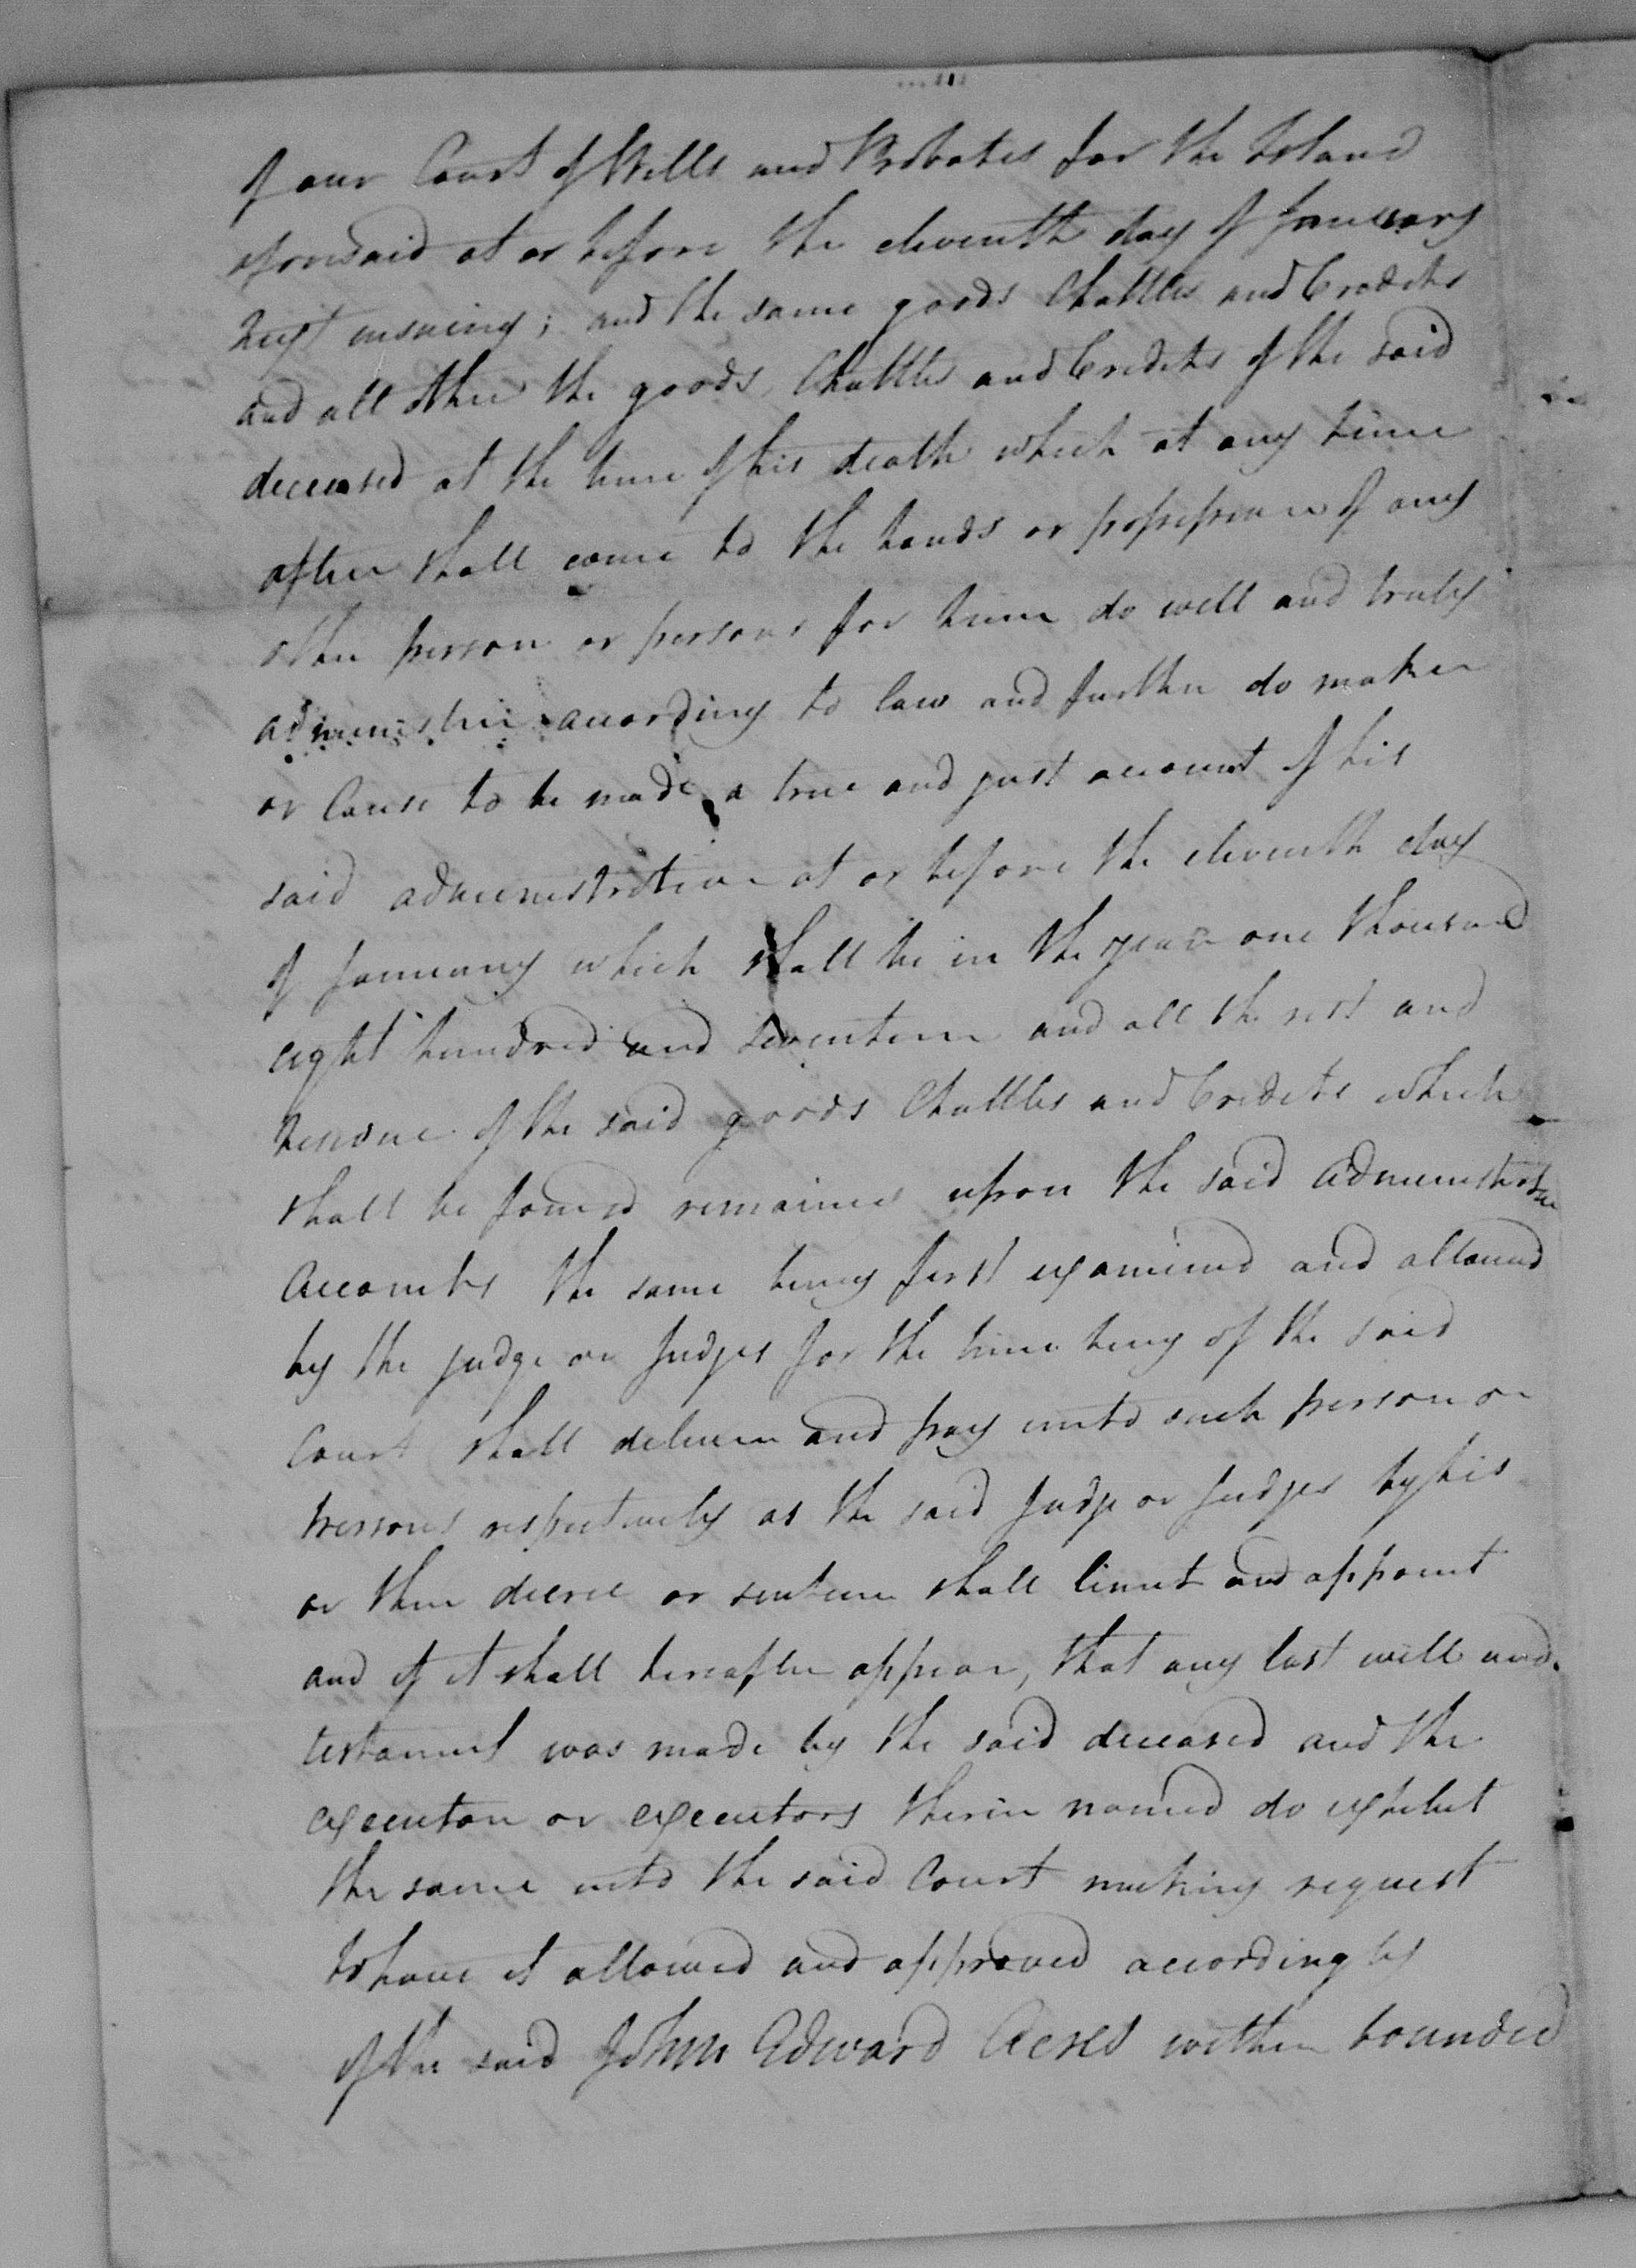 of our Court of Wills and Probates for the Island
aforesaid at or before the eleventh day of January
next ensuing; and the same goods Chattles and Credits
and all other the goods, Chattles and Credits of the said
deceased at the time of his death which at any time
after shall come to the hands or possession of any
other person or persons for him do well and truly
administer according to law and further do make
or Cause to be made a true and just account of his
said administration at or before the eleventh day
of January which shall be in the year one thousand
eight hundred and seventeen and all the rest and
residue of the said goods Chattles and Credits which
shall be found remaining upon the said Administration
Accounts the same being first examined and allowed
by the judge or Judges for the time being of the said
Court shall deliver and pay unto such person or
persons respectively as the said Judge or Judges by his
or their decree or sentence shall limit and appoint
and if it shall hereafter appear, that any last will and
testament was made by the said deceased and the
executor or executors therein named do exhibit
the same into the said Court making request
to have it allowed and approved accordingly
if the said John Edward Acres within bounded